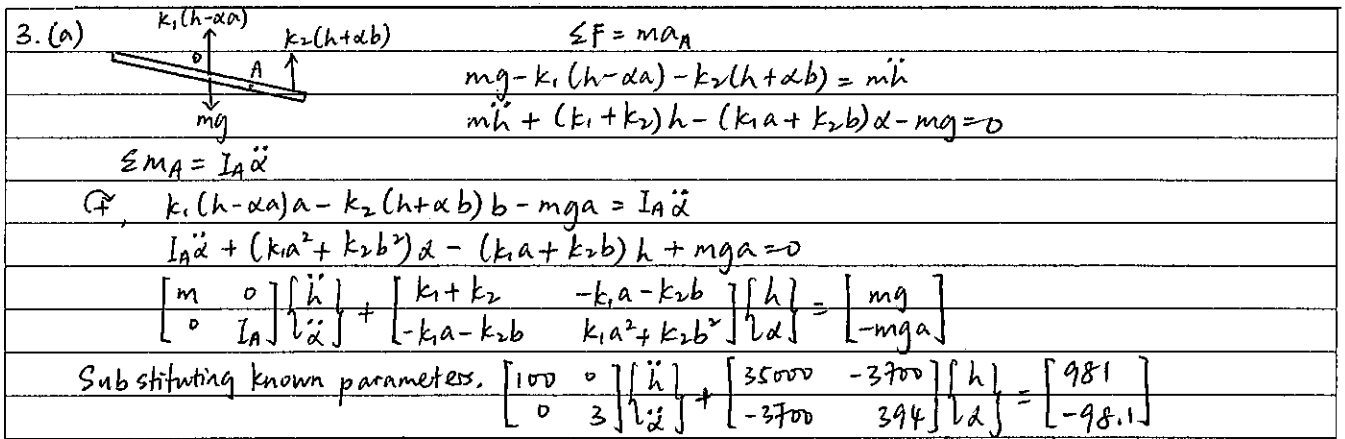 3. (a)
k₁(h-αa)
k₂(h+αb)
O
A
mg
ΣF = ma_A
mg - k₁(h-αa) - k₂(h+αb) = mḧ
mḧ + (k₁+k₂)h - (k₁a + k₂b)α - mg = 0
Σm_A = I_A α̈
↷+, k₁(h-αa)a - k₂(h+αb)b - mga = I_A α̈
I_A α̈ + (k₁a² + k₂b²)α - (k₁a + k₂b)h + mga = 0
[m 0; 0 I_A]{ḧ; α̈} + [k₁+k₂ -k₁a-k₂b; -k₁a-k₂b k₁a²+k₂b²]{h; α} = [mg; -mga]
Substituting known parameters. [100 0; 0 3]{ḧ; α̈} + [35000 -3700; -3700 394]{h; α} = [981; -98.1]